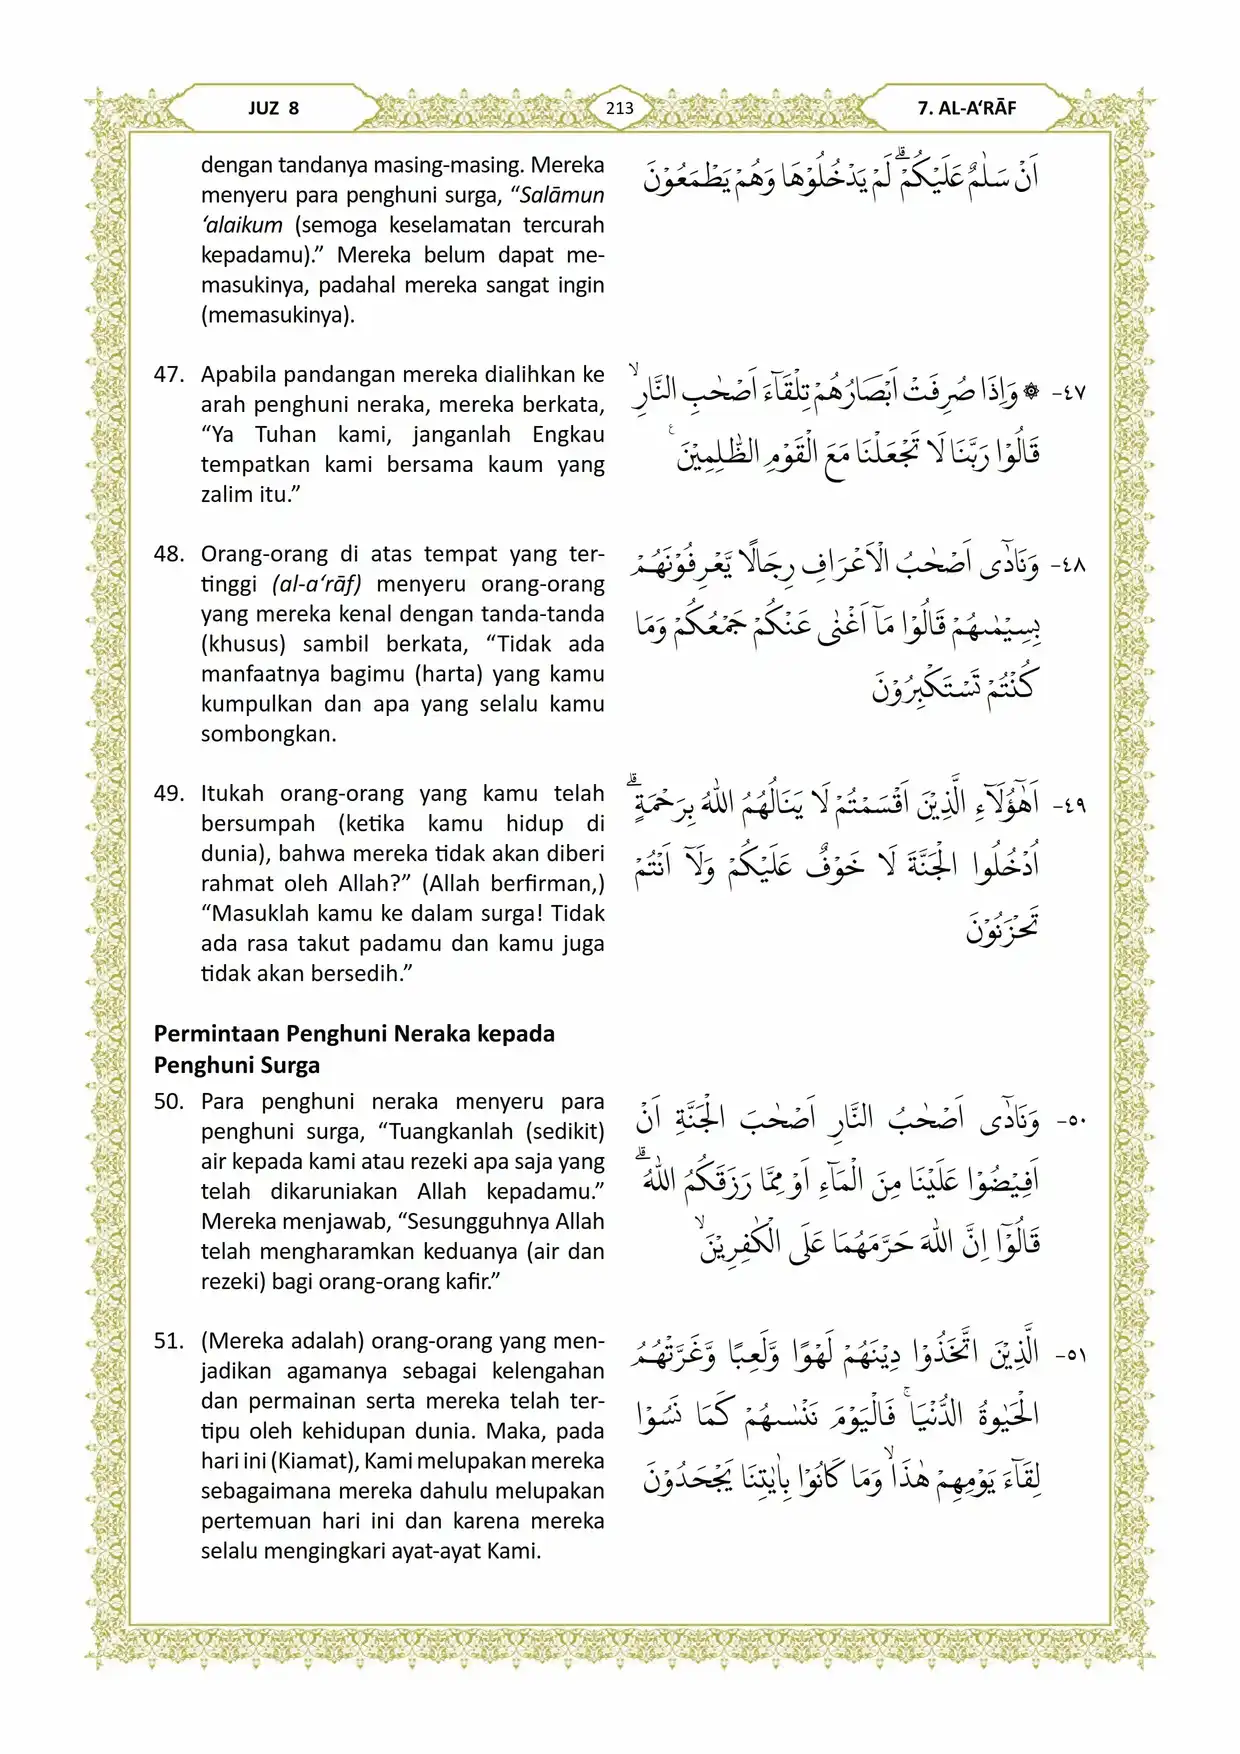 JUZ 8
213
7. AL-A‘RĀF
dengan tandanya masing-masing. Mereka
menyeru para penghuni surga, “Salāmun
‘alaikum (semoga keselamatan tercurah
kepadamu).” Mereka belum dapat me-
masukinya, padahal mereka sangat ingin
(memasukinya).
اَنْ سَلٰمٌ عَلَيْكُمْۗ لَمْ يَدْخُلُوْهَا وَهُمْ يَطْمَعُوْنَ
47. Apabila pandangan mereka dialihkan ke
arah penghuni neraka, mereka berkata,
“Ya Tuhan kami, janganlah Engkau
tempatkan kami bersama kaum yang
zalim itu.”
٤٧- ۞ وَاِذَا صُرِفَتْ اَبْصَارُهُمْ تِلْقَاۤءَ اَصْحٰبِ النَّارِۙ
قَالُوْا رَبَّنَا لَا تَجْعَلْنَا مَعَ الْقَوْمِ الظّٰلِمِيْنَ ࣖ
48. Orang-orang di atas tempat yang ter-
tinggi (al-a‘rāf) menyeru orang-orang
yang mereka kenal dengan tanda-tanda
(khusus) sambil berkata, “Tidak ada
manfaatnya bagimu (harta) yang kamu
kumpulkan dan apa yang selalu kamu
sombongkan.
٤٨- وَنَادٰٓى اَصْحٰبُ الْاَعْرَافِ رِجَالًا يَّعْرِفُوْنَهُمْ
بِسِيْمٰىهُمْ قَالُوْا مَآ اَغْنٰى عَنْكُمْ جَمْعُكُمْ وَمَا
كُنْتُمْ تَسْتَكْبِرُوْنَ
49. Itukah orang-orang yang kamu telah
bersumpah (ketika kamu hidup di
dunia), bahwa mereka tidak akan diberi
rahmat oleh Allah?” (Allah berfirman,)
“Masuklah kamu ke dalam surga! Tidak
ada rasa takut padamu dan kamu juga
tidak akan bersedih.”
٤٩- اَهٰٓؤُلَاۤءِ الَّذِيْنَ اَقْسَمْتُمْ لَا يَنَالُهُمُ اللّٰهُ بِرَحْمَةٍۗ
اُدْخُلُوا الْجَنَّةَ لَا خَوْفٌ عَلَيْكُمْ وَلَآ اَنْتُمْ
تَحْزَنُوْنَ
Permintaan Penghuni Neraka kepada
Penghuni Surga
50. Para penghuni neraka menyeru para
penghuni surga, “Tuangkanlah (sedikit)
air kepada kami atau rezeki apa saja yang
telah dikaruniakan Allah kepadamu.”
Mereka menjawab, “Sesungguhnya Allah
telah mengharamkan keduanya (air dan
rezeki) bagi orang-orang kafir.”
٥٠- وَنَادٰٓى اَصْحٰبُ النَّارِ اَصْحٰبَ الْجَنَّةِ اَنْ
اَفِيْضُوْا عَلَيْنَا مِنَ الْمَاۤءِ اَوْ مِمَّا رَزَقَكُمُ اللّٰهُۗ
قَالُوْٓا اِنَّ اللّٰهَ حَرَّمَهُمَا عَلَى الْكٰفِرِيْنَۙ
51. (Mereka adalah) orang-orang yang men-
jadikan agamanya sebagai kelengahan
dan permainan serta mereka telah ter-
tipu oleh kehidupan dunia. Maka, pada
hari ini (Kiamat), Kami melupakan mereka
sebagaimana mereka dahulu melupakan
pertemuan hari ini dan karena mereka
selalu mengingkari ayat-ayat Kami.
٥١- الَّذِيْنَ اتَّخَذُوْا دِيْنَهُمْ لَهْوًا وَّلَعِبًا وَّغَرَّتْهُمُ
الْحَيٰوةُ الدُّنْيَاۚ فَالْيَوْمَ نَنْسٰىهُمْ كَمَا نَسُوْا
لِقَاۤءَ يَوْمِهِمْ هٰذَاۙ وَمَا كَانُوْا بِاٰيٰتِنَا يَجْحَدُوْنَ